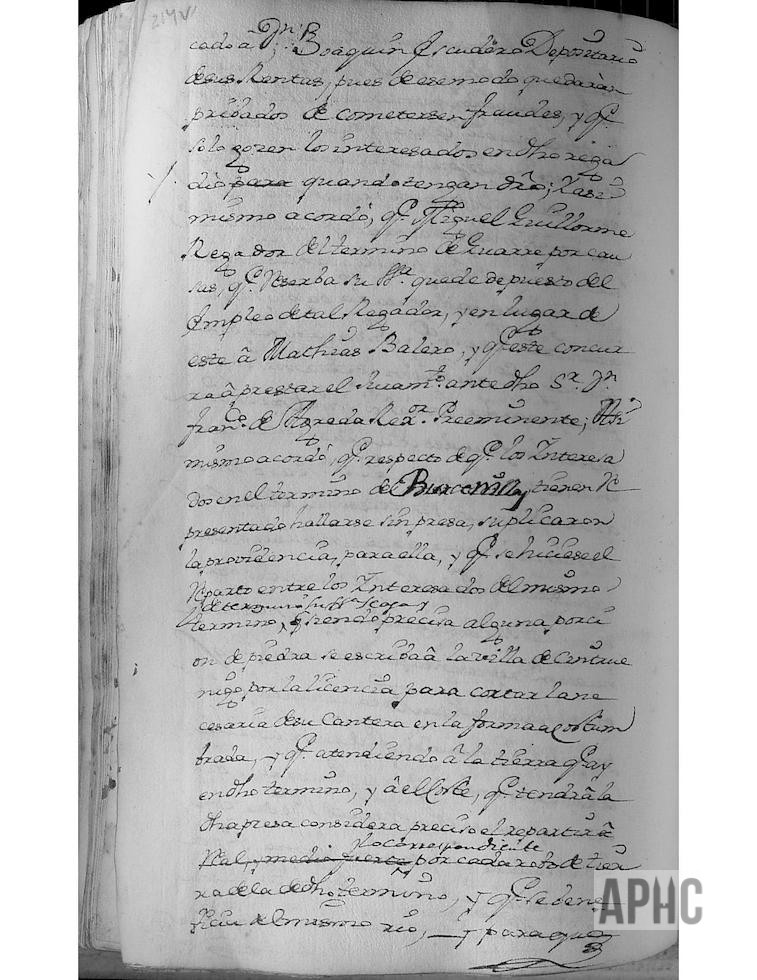 214v
cado â Dn. Joaquin Escudero Depositario
de sus Rentas, pues de ese modo quedaràn
pribados de cometersen fraudes, y qe.
solo gozen los interesados en dho rega
dio para quando tengan dro;
mismo acordó, qe. Miguel Guillorme
Regador del termino de por cau
sas, qe. Reserba su Sa. quede depuesto del
Empleo de tal Regador, y en lugar de
este â Mathias Balero, y qe. este concur
ra â prestar el Juamto. ante dho Sr. Dn.
Franco. de Agreda Rexor. Preeminente; Assi
mismo acordó, qe. respecto de qe. los Interesa
dos en el termino de tienen Re
presentado hallarse sin presa, suplicaron
la providencia, para ella, y qe. se hiciese el
Reparto entre los Interesados del mismo
determinó su Sa. se aga y
termino, q siendo precisa alguna porci
on de piedra se escriba â la villa de Cintrue
nigo por la licencia para cortar la ne
cesaria de su Cantera en la forma acostum
brada, y qe. atendiendo â la tierra q. ay
en dho termino, y â el Coste, qe. tendrâ la
dha presa considera preciso el repartir â
lo correspondiente
Real, y medio fuerte por cada robo de tier
ra de la de dho termino, y qe. se bene
ficia del mismo rio, y para que
APHC